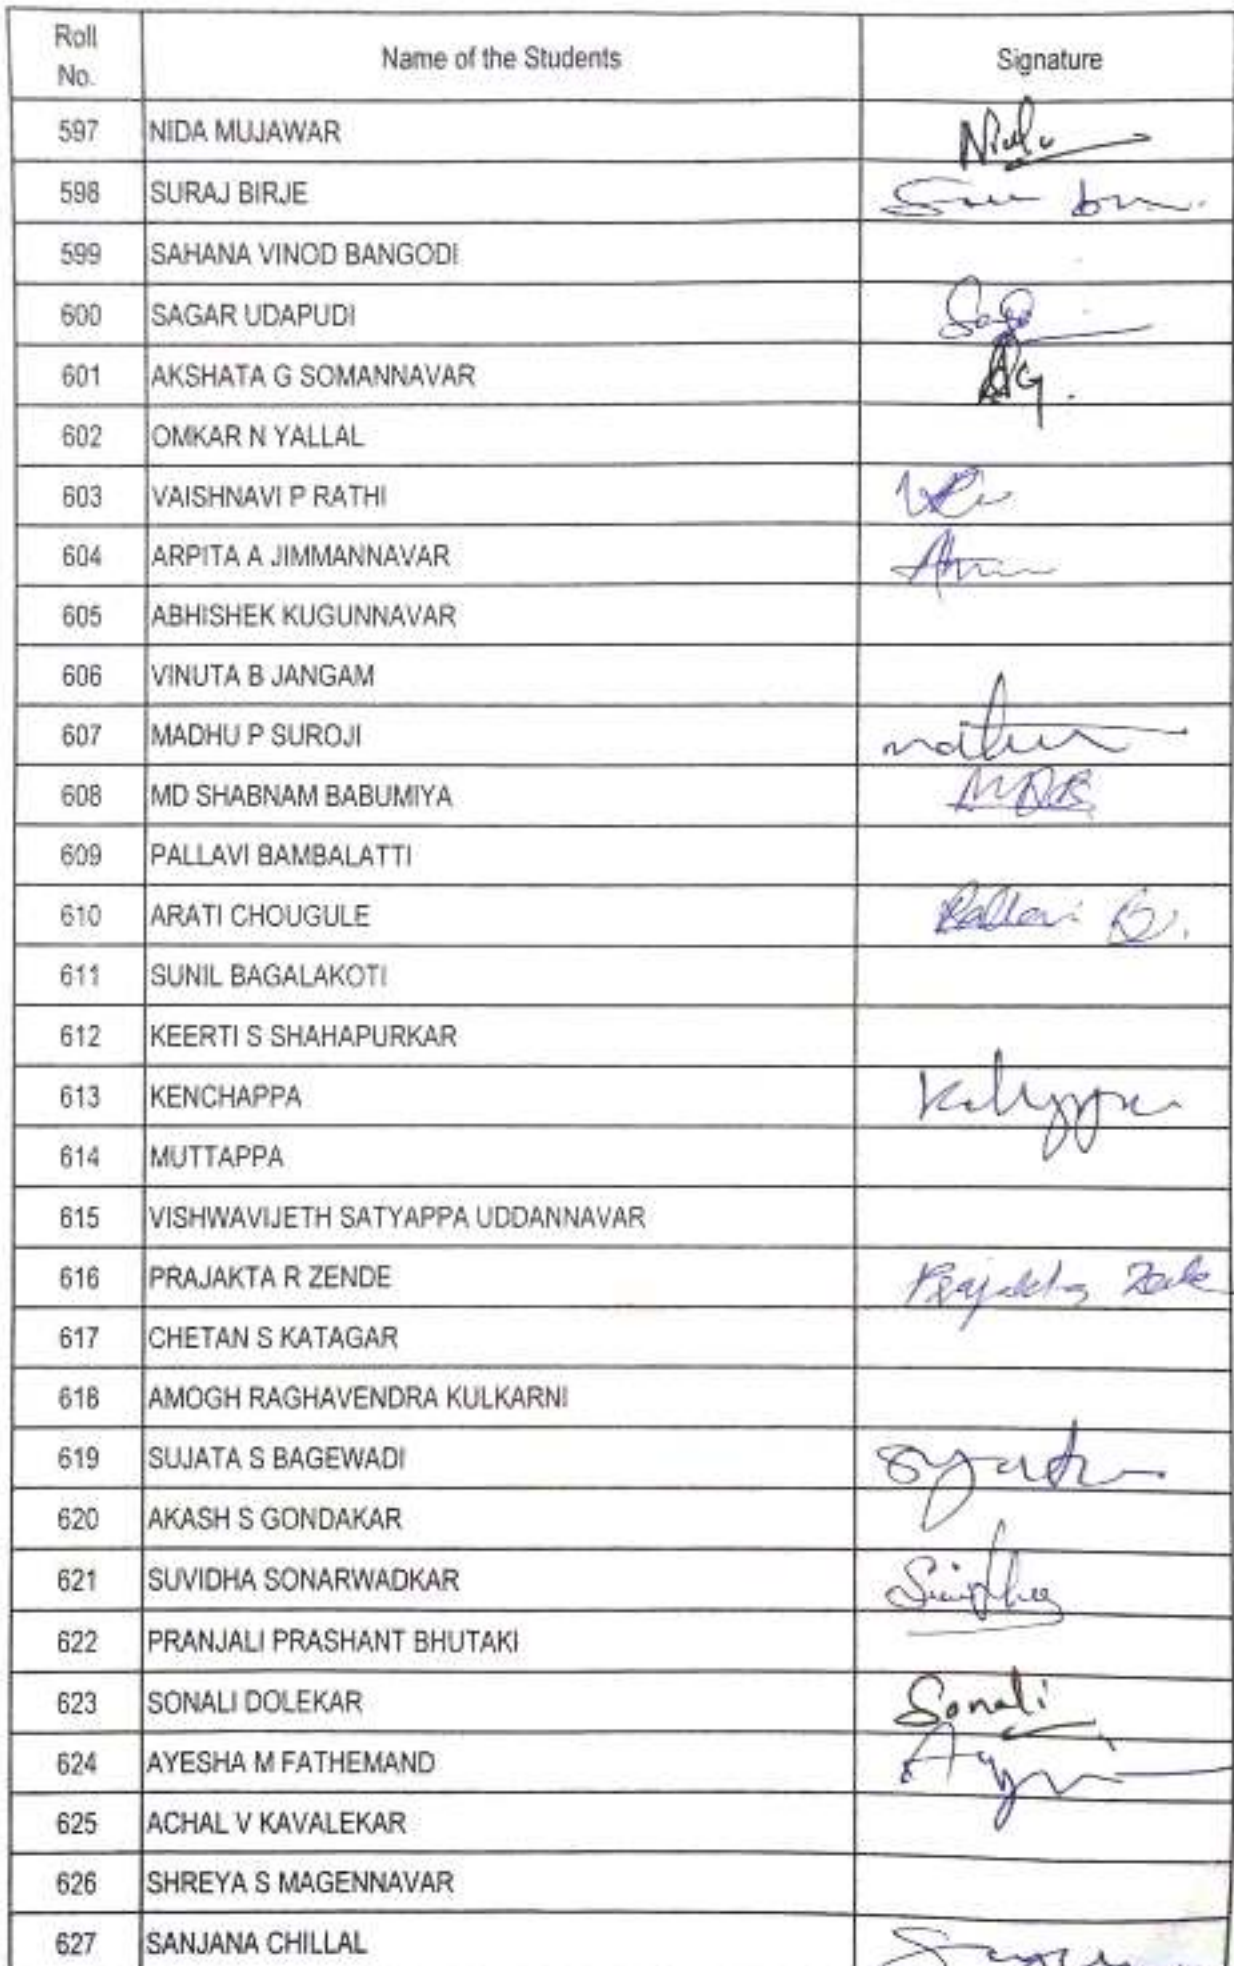 Roll No. Name of the Students Signature
597 NIDA MUJAWAR Nida
598 SURAJ BIRJE
599 SAHANA VINOD BANGODI
600 SAGAR UDAPUDI
601 AKSHATA G SOMANNAVAR
602 OMKAR N YALLAL
603 VAISHNAVI P RATHI
604 ARPITA A JIMMANNAVAR
605 ABHISHEK KUGUNNAVAR
606 VINUTA B JANGAM
607 MADHU P SUROJI
608 MD SHABNAM BABUMIYA
609 PALLAVI BAMBALATTI
610 ARATI CHOUGULE Pallavi B.
611 SUNIL BAGALAKOTI
612 KEERTI S SHAHAPURKAR
613 KENCHAPPA
614 MUTTAPPA
615 VISHWAVIJETH SATYAPPA UDDANNAVAR
616 PRAJAKTA R ZENDE Prajakta
617 CHETAN S KATAGAR
618 AMOGH RAGHAVENDRA KULKARNI
619 SUJATA S BAGEWADI
620 AKASH S GONDAKAR
621 SUVIDHA SONARWADKAR
622 PRANJALI PRASHANT BHUTAKI
623 SONALI DOLEKAR Sonali
624 AYESHA M FATHEMAND
625 ACHAL V KAVALEKAR
626 SHREYA S MAGENNAVAR
627 SANJANA CHILLAL